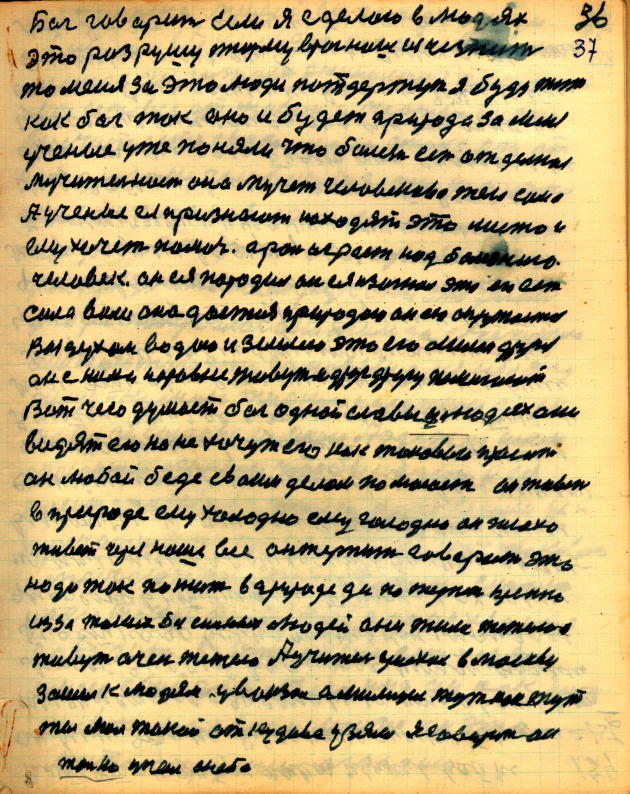 Бог говорит если я сделаю в людях 36
это разрушу тюрму врагнаш исчезнит 37
то меня за это люди потдержут я буду жит
как бог так оно и будет природа за меня
ученые уже поняли что болезн ест отделная
мучителност она мучет человеково тело само
А ученые ея признают находят это место и
ему хочет помоч. врач играет над болного.
человек. он ея породил он ея изогнал это ен ест
сила воли она дается природою он ею окружается
воздухом водою и землею это его милыи друзя
он с ними наровне живут и друг другу помогают
Вот чего думает бог одной славы и в людях они
видят его но не хочут его как таковога просит
он любой беде своим делом помогает он живет
в природе ему холодно ему голодно он плохо
живет через наше все он терпит говорит это
надо так пожит в природе да потерпет
изза таких бессилных людей они жили тежело
живут очен тежело А учител уехал в москву
зашел к людям у вокзал а милиция тут как тут
ты мол такой откудова взялся я говорит он
толко упал снеба